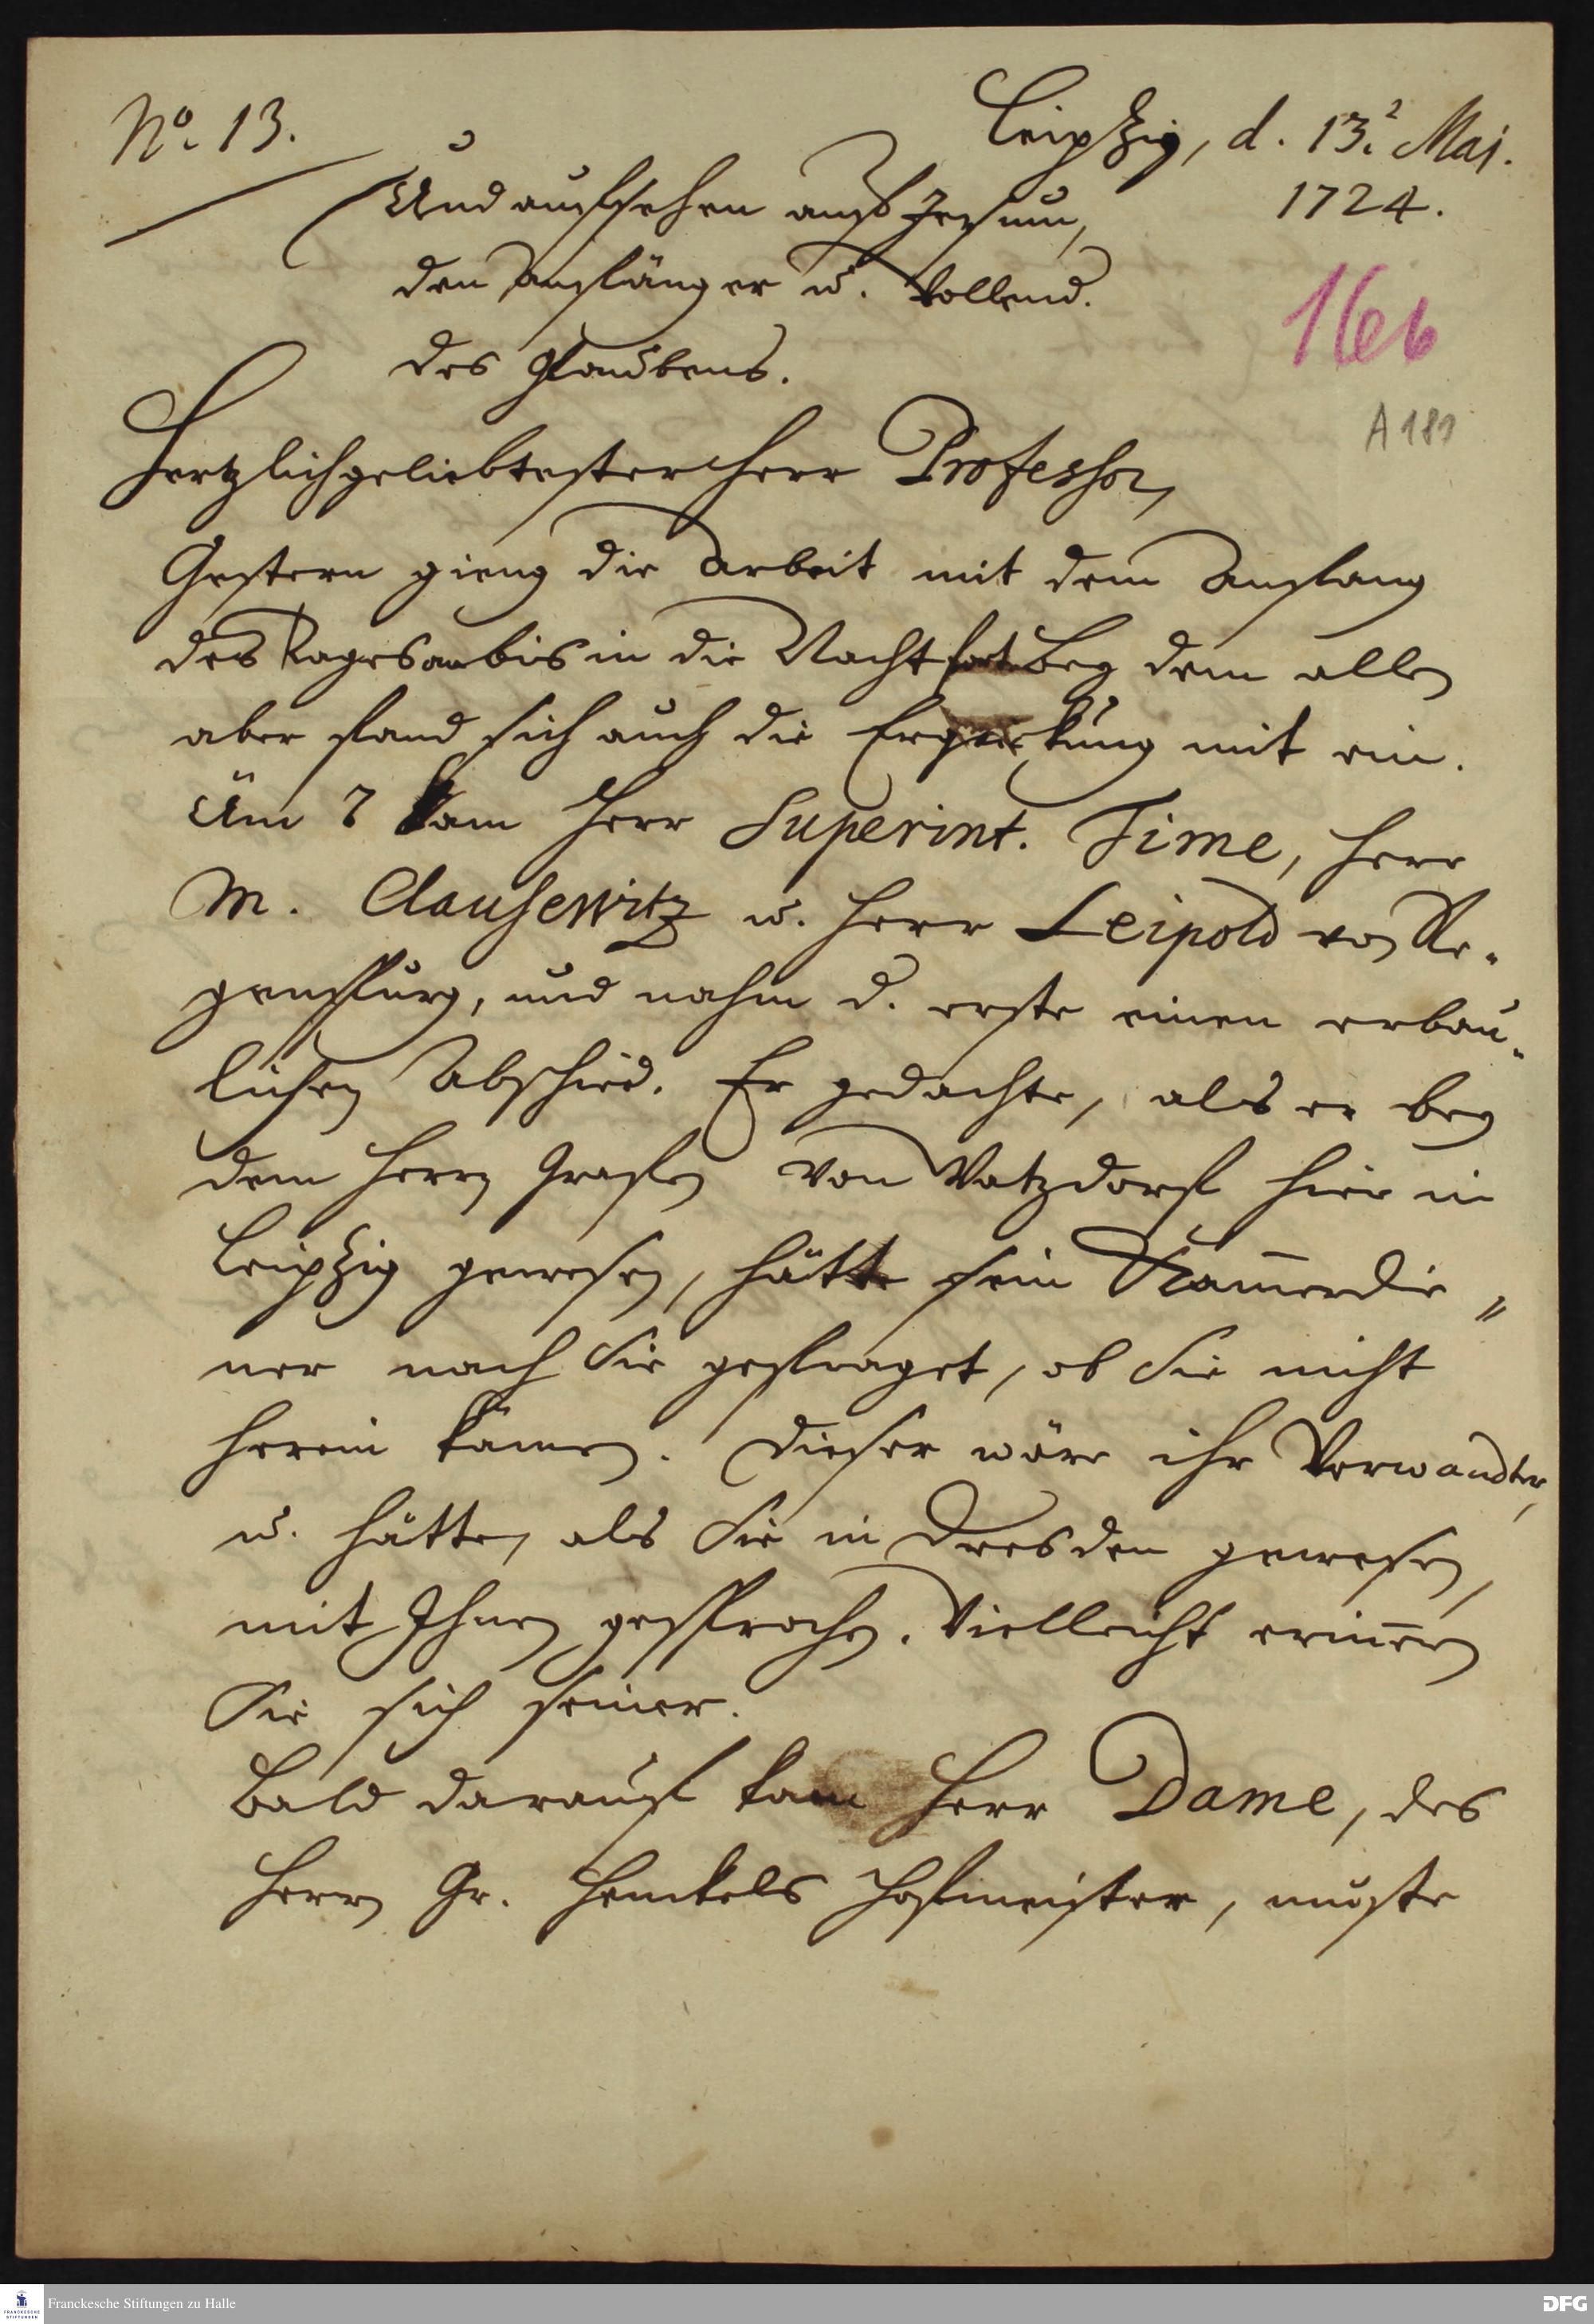 No. 13.
Leipzig, d. 13. Maj.
1724.
Und auffsehen auf Jesum,
den Anfänger u. Vollend.
des Glaubens.
16b
A 181
Hertzlichgeliebtester Herr Professor,
Gestern gieng die Arbeit mit dem Anfang
des Tages an bis in die Nacht fort. Bey dem allen
aber fand sich auch die Erquickung mit ein.
Um 7 kam Herr Superint. Time, Herr
M. Clausewitz u. Herr Leipold von Re-
genspurg, und nahm d. erste einen erbau-
lichen Abschied. Er gedachte, als er bey
dem Herrn Grafen von Vatzdorf hier in
Leipzig gewesen, hätte sein Kam̅erdie-
ner nach Sie gefraget, ob Sie nicht
herein kämen. Dieser wäre ihr Verwandter,
u. hätte, als Sie in Dresden gewesen,
mit Ihnen gesprochen. Vielleicht erin̅ern
Sie sich seiner.
Bald darauf kam Herr Dame, des
Herrn Gr. Henckels Hofmeister, muste
Franckesche Stiftungen zu Halle
DFG